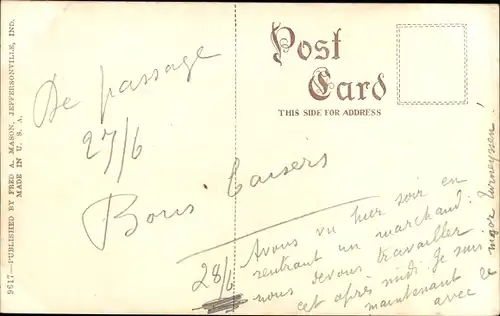 9617—PUBLISHED BY FRED A. MASON, JEFFERSONVILLE, IND.
MADE IN U. S. A.
Post
Card
THIS SIDE FOR ADDRESS
De passage
27/6
Bons baisers
28/6
Avons vu hier soir en
rentrant un marchand:
nous devons travailler
cet après midi. Je suis
maintenant
avec le
major